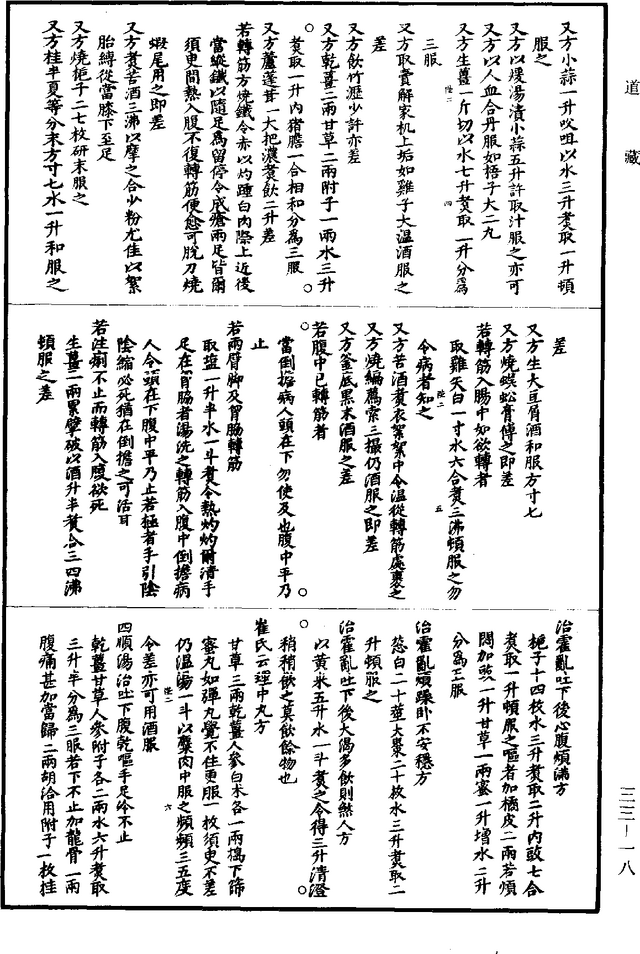 道藏
又方小蒜一升㕮咀以水三升煮取一升頓
服之
又方以煖湯漬小蒜五升許取汁服之亦可
又方以人血合丹服如梧子大二九
又方生薑一斤切以水七升煮取一升分爲
三服
陸二
四
又方取賣解家机上垢如雞子大温酒服之
差
又方飲竹瀝少許亦差
又方乾薑二兩甘草二兩附子一兩水三升
煮取一升内猪膽一合相和分爲三服
又方蘆蓬茸一大把濃煮飲二升差
若轉筋方燒鐵令赤以灼踵白肉際上近後
當縱鐵以隨足爲留停令成瘡兩足皆爾
須臾間熱入腹不復轉筋便愈可脱刀燒
蝦尾用之即差
又方煮苦酒三沸以摩之合少粉尤佳以絮
胎縛從當膝下至足
又方燒梔子二七枚研末服之
又方桂半夏等分末方寸七水一升和服之
差
又方生大豆屑酒和服方寸七
又方燒蜈蚣膏傅之即差
若轉筋入腸中如欲轉者
取雞矢白一寸水六合煮三沸頓服之勿
令病者知之
陸二
五
又方苦酒煮衣絮絮中令温從轉筋處裹之
又方燒編薦索三撮仍酒服之即差
又方釜底黑末酒服之差
若腹中已轉筋者
當倒擔病人頭在下勿使及也腹中平乃
止
若兩臂脚及胷脇轉筋
取塩一升半水一斗煮令熱灼灼爾漬手
足在胷脇者湯洗之轉筋入腹中倒擔病
人令頭在下腹中平乃止若極者手引陰
陰縮必死猶在倒擔之可活耳
若注痢不止而轉筋入腹欲死
生薑一兩累擘破以酒升半煮合三四沸
頓服之差
治霍亂吐下後心腹煩滿方
梔子十四枚水三升煮取二升内豉七合
煮取一升頓服之嘔者加橘皮二兩若煩
悶加豉一升甘草一兩蜜一升增水二升
分爲三服
治霍亂煩躁卧不安穩方
葱白二十莖大棗二十枚水三升煮取二
升頓服之
治霍亂吐下後大渴多飲則煞人方
以黄米五升水一斗煮之令得三升清澄
稍稍飲之莫飲餘物也
崔氏云理中丸方
甘草三兩乾薑人參白术各一兩搗下篩
蜜丸如彈丸覺不住更服一枚須臾不差
仍温湯一斗以麋肉中服之頻頻三五度
令差亦可用酒服
陸二
六
四順湯治吐下腹乾嘔手足冷不止
乾薑甘草人參附子各二兩水六升煮取
三升半分爲三服若下不止加龍骨一兩
腹痛甚加當歸二兩胡洽用附子一枚桂
三三—一八